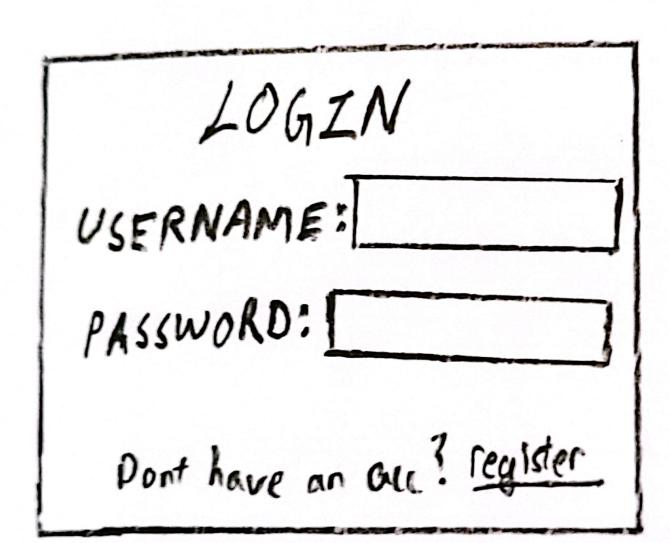 LOGIN
USERNAME:
PASSWORD:
Dont have an acc? register